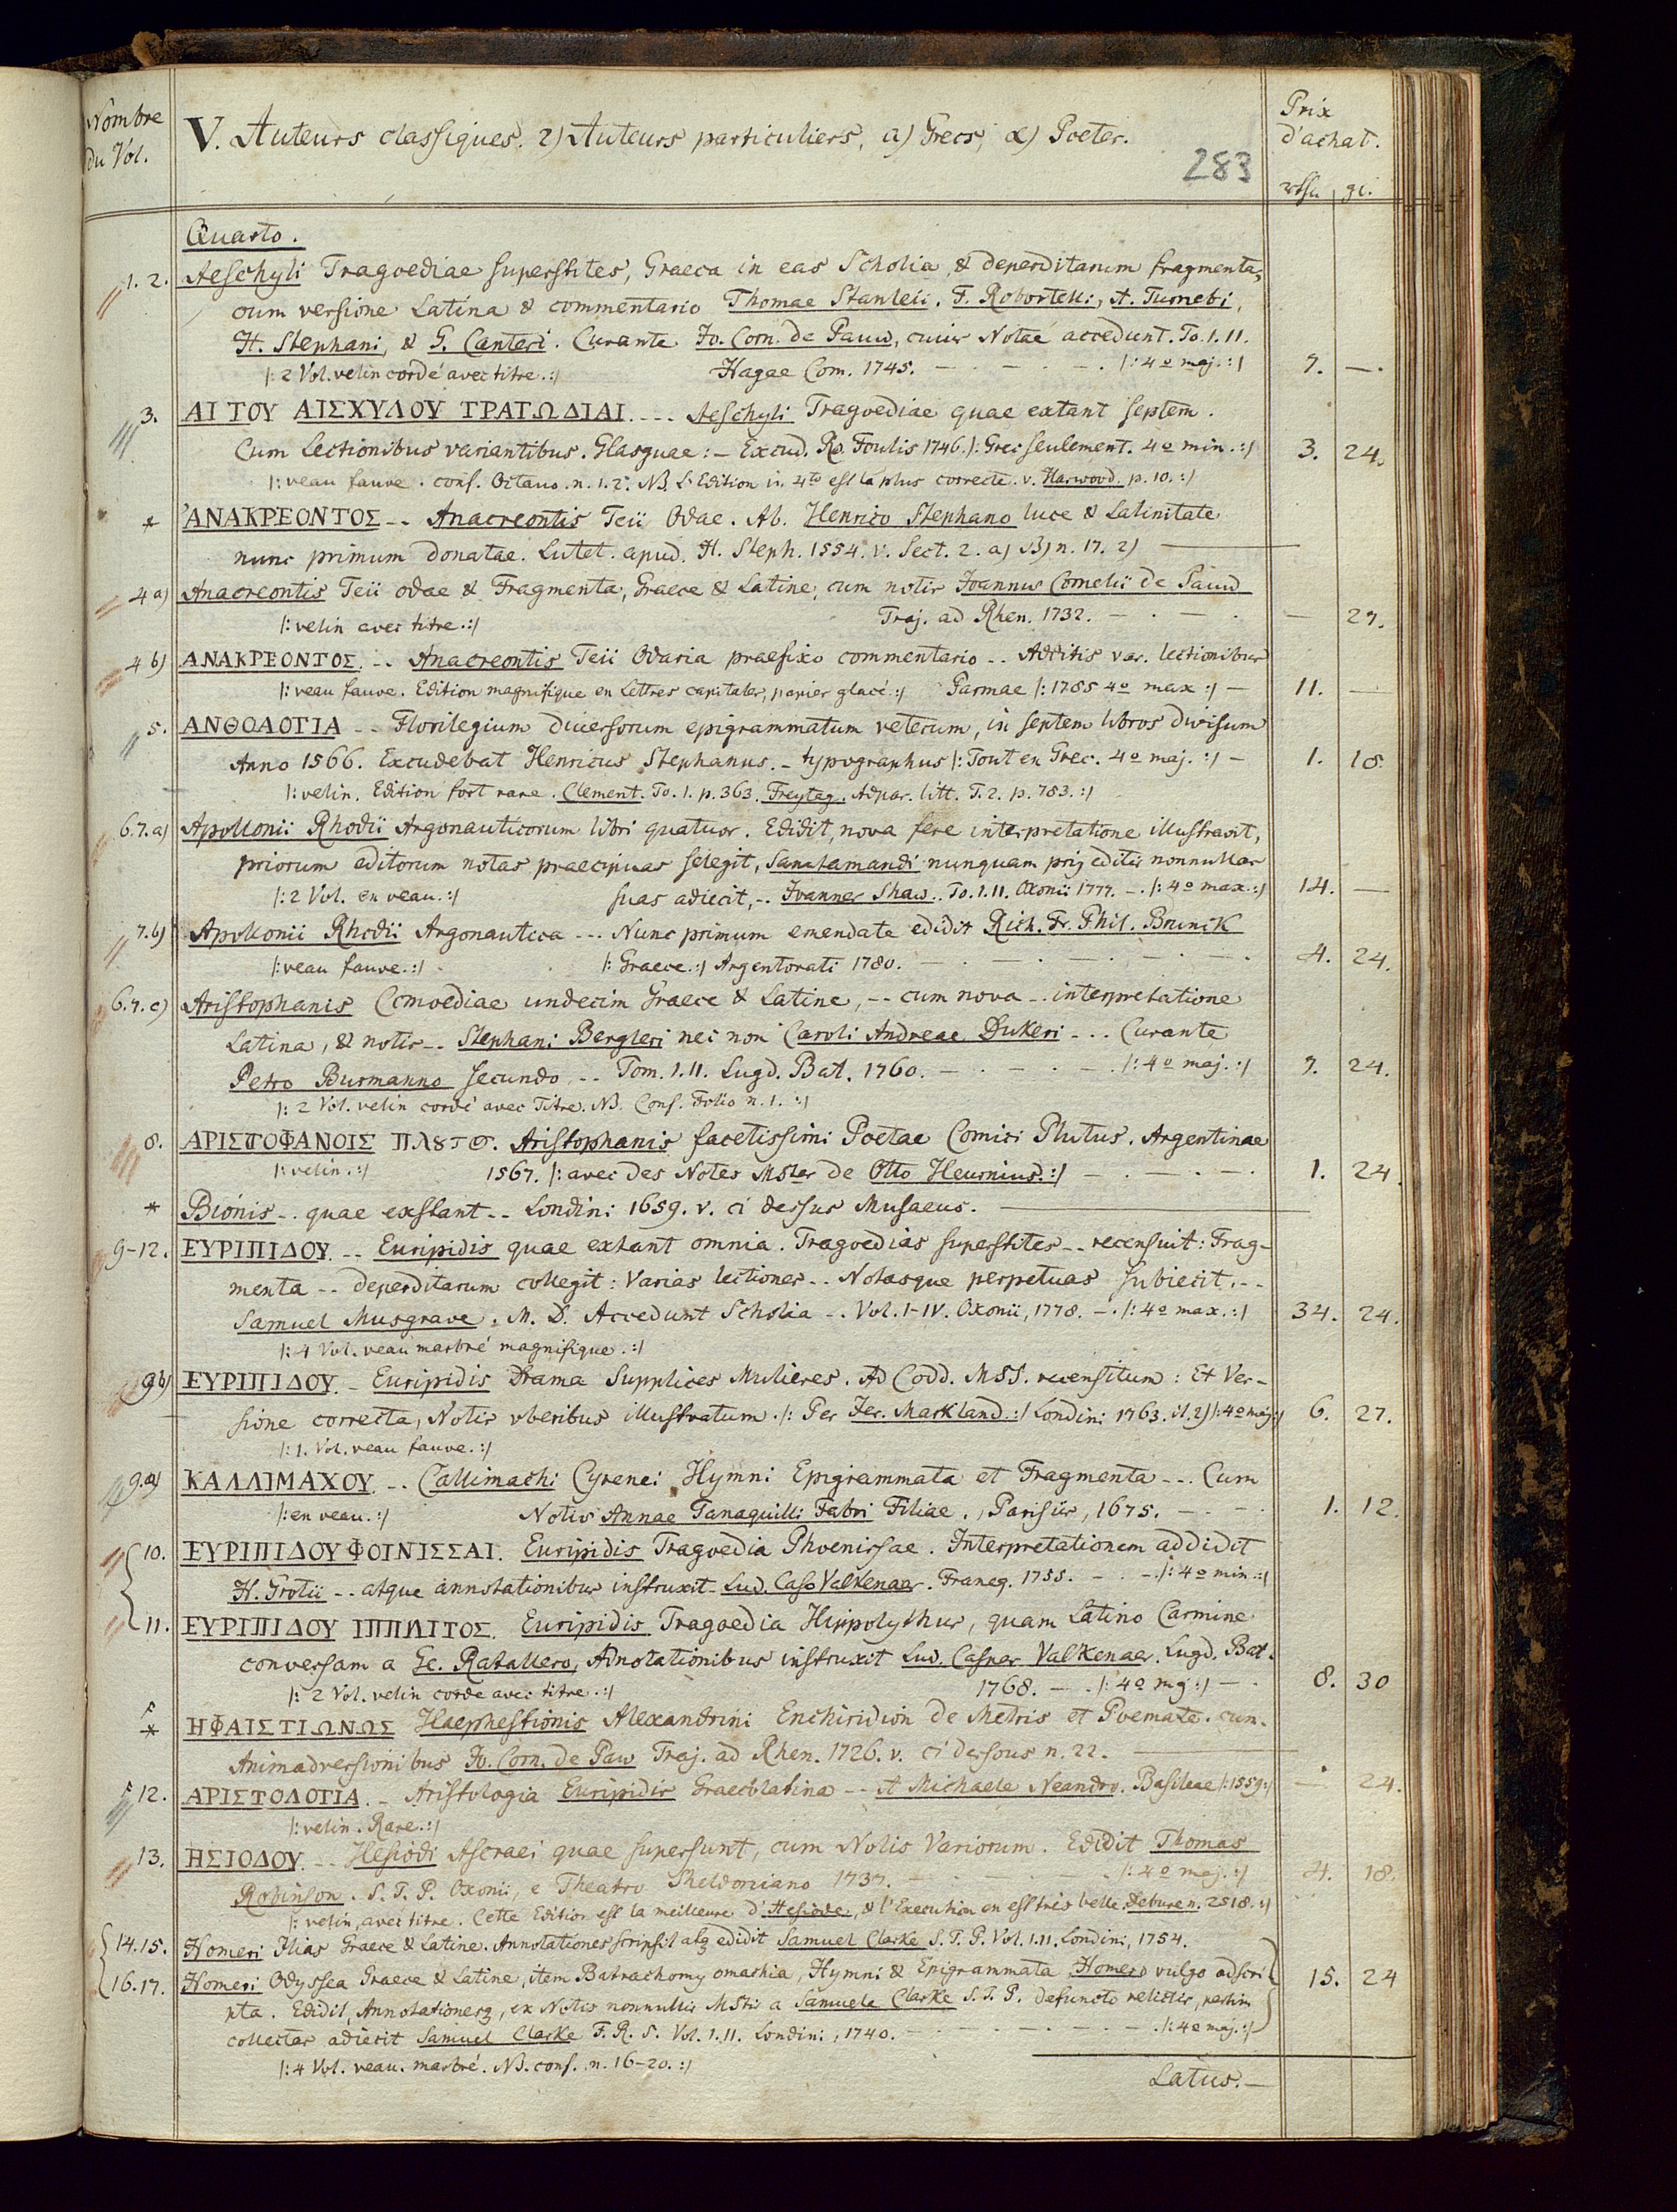 Nombre
du Vol.
V. Auteurs classiques. 2) Auteurs particuliers, a) Grecs, α) Poetes.
283
Prix
d'achat.
gr.
Quarto.
1. 2. Aeschyli Tragoediae superstites, Graeca in eas Scholia, & deperditarum fragmenta,
cum versione Latina & commentario Thomae Stanleii, F. Robortelli, A. Turnebi,
H. Stephani, & G. Canteri. Curante Jo. Corn. de Pauw, cuius Notae accedunt. To. I. II.
|: 2 Vol. velin cordé avec titre. :| Hagae Com. 1745. — . — . — . |: 4º maj. :| 7. —.
3. ΑΙ ΤΟΥ ΑΙΣΧΥΛΟΥ ΤΡΑΓΩΔΙΑΙ. --- Aeschyli Tragoediae quae extant septem.
Cum Lectionibus variantibus. Glasguae: — Excud. Ro. Foulis 1746. |: Grec seulement. 4º min. :| 3. 24.
|: veau fauve. conf. Octavo. n. 1. 2. NB. L'Edition in 4to est la plus correcte. v. Harwood. p. 10. :|
* ΑΝΑΚΡΕΟΝΤΟΣ -- Anacreontis Teii Odae. Ab. Henrico Stephano luce & Latinitate
nunc primum donatae. Lutet. apud. H. Steph. 1554. v. Sect. 2. a) β) n. 17. 2) —
4 a) Anacreontis Teii odae & Fragmenta, Graece & Latine, cum notis Joannis Cornelii de Pauw
|: velin avec titre. :| Traj. ad Rhen. 1732. — . — . — 27.
4 b) ΑΝΑΚΡΕΟΝΤΟΣ. -- Anacreontis Teii Odaria praefixo commentario -- Additis var. lectionibus
|: veau fauve. Edition magnifique en Lettres capitales, papier glacé :| Parmae |: 1785 4º max :| — 11. —
5. ΑΝΘΟΛΟΓΙΑ -- Florilegium diversorum epigrammatum veterum, in septem libros divisum
Anno 1566. Excudebat Henricus Stephanus. — typographus |: Tout en Grec. 4º maj. :| — 1. 18.
|: velin. Edition fort rare. Clement. To. 1. p. 363. Freytag. Adpar. litt. T. 2. p. 783. :|
6. 7. a) Apollonii Rhodii Argonauticorum libri quatuor. Edidit, nova fere interpretatione illustravit,
priorum editorum notas praecipuas selegit, Sanctamandi nunquam prius editis nonnullas
|: 2 Vol. en veau. :| suas adiecit, -- Joannes Shaw. To. I. II. Oxonii 1777. — . |: 4º max. :| 14. —
7. b) Apollonii Rhodii Argonautica --- Nunc primum emendate edidit Rich. Fr. Phil. Brunck
|: veau fauve. :| |: Graece. :| Argentorati 1780. — . — . — . — . — . 4. 24.
6. 7. c) Aristophanis Comoediae undecim Graece & Latine, -- cum nova -- interpretatione
Latina, & notis -- Stephani Bergleri nec non Caroli Andreae Dukeri --- Curante
Petro Burmanno secundo -- Tom. I. II. Lugd. Bat. 1760. — . — . — . |: 4º maj. :| 7. 24.
|: 2 Vol. velin cordé avec Titre. NB. Conf. Folio n. 1. :|
8. ΑΡΙΣΤΟΦΑΝΟΙΣ Aristophanis facetissimi Poetae Comici Plutus. Argentinae
|: velin. :| 1567. |: avec des Notes Mstes de Otto Heurnius. :| — . — . — . 1. 24.
* Bionis -- quae exstant -- Londini 1659. v. ci dessus Musaeus. —
9-12. ΕΥΡΙΠΙΔΟΥ. -- Euripidis quae extant omnia. Tragoedias superstites -- recensuit: Frag-
menta -- deperditarum collegit: Varias lectiones -- Notasque perpetuas subiecit. --
Samuel Musgrave. M. D. Accedunt Scholia -- Vol. I-IV. Oxonii, 1778. — . |: 4º max. :| 34. 24.
|: 4 Vol. veau marbré magnifique. :|
9 b) ΕΥΡΙΠΙΔΟΥ. — Euripidis Drama Supplices Mulieres. Ad Codd. MSS. recensitum: Et Ver-
sione correcta, Notis uberibus illustratum. |: Per Jer. Markland. :| Londini 1763. |: 4º maj :| 6. 27.
|: 1. Vol. veau fauve. :|
9. a) ΚΑΛΛΙΜΑΧΟΥ. -- Callimachi Cyrenei Hymni Epigrammata et Fragmenta --- Cum
|: en veau. :| Notis Annae Tanaquilli Fabri Filiae., Parisiis, 1675. — . — . 1. 12.
10. ΕΥΡΙΠΙΔΟΥ ΦΟΙΝΙΣΣΑΙ. Euripidis Tragoedia Phoenissae. Interpretationem addidit
H. Grotii -- atque annotationibus instruxit — Lud. Casp Valkenaer. Franeq. 1755. — . — . |: 4º min. :|
11. ΕΥΡΙΠΙΔΟΥ ΙΠΠΛΙΤΟΣ. Euripidis Tragoedia Hippolythus, quam Latino Carmine
conversam a Ge. Ratallero, Adnotationibus instruxit Lud. Casper Valkenaer. Lugd. Bat.
|: 2 Vol. velin corde avec titre. :| 1768. — . |: 4º mg :| — . 8. 30
* ΗΦΑΙΣΤΙΩΝΩΣ Haephestionis Alexandrini Enchiridion de Metris et Poemate. cum.
Animadversionibus Jo. Corn. de Paw Traj. ad Rhen. 1726. v. ci dessous n. 22. —
12. ΑΡΙΣΤΟΛΟΓΙΑ. — Aristologia Euripidis Graecolatina -- A Michaele Neandro. Basileae |: 1559 :| — 24.
|: velin. Rare. :|
13. ΗΣΙΟΔΟΥ. -- Hesiodi Ascraei quae supersunt, cum Notis Variorum. Edidit Thomas
Robinson. S. T. P. Oxonii, e Theatro Sheldoniano 1737. — . — . — . |: 4º maj. :| 4. 18.
|: velin, avec titre. Cette Edition est la meilleure d'Hesiode, & l'Execution en est très belle. Debure n. 2518. :|
14. 15. Homeri Ilias Graece & Latine. Annotationes scripsit atq edidit Samuel Clarke S. T. P. Vol. I. II. Londini, 1754.
16. 17. Homeri Odyssea Graece & Latine, item Batrachomyomachia, Hymni & Epigrammata Homero vulgo adscri 15. 24
pta. Edidit, Annotationesq, ex Notis nonnullis Mstis a Samuele Clarke S. T. P. defuncto relictis, partim
collectas adiecit Samuel Clarke F. R. S. Vol. I. II. Londini, 1740. — . — . — . — . |: 4º maj. :|
|: 4 Vol. veau. marbré. NB. conf. n. 16-20. :|
Latus. —